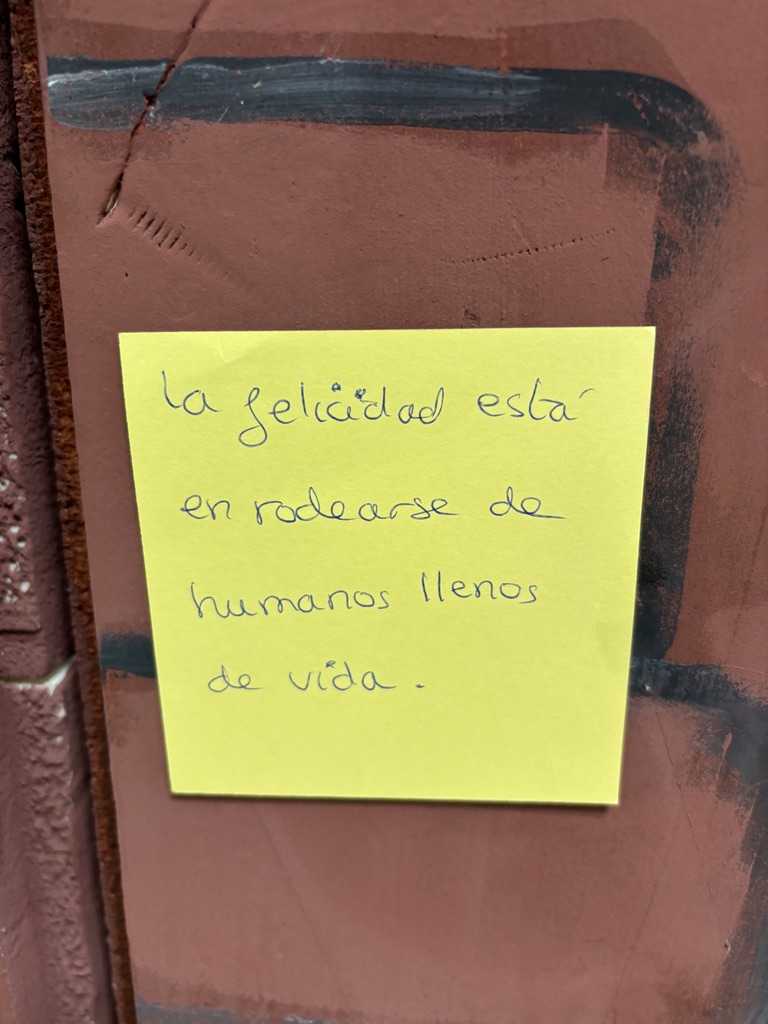 La felicidad está
en rodearse de
humanos llenos
de vida.